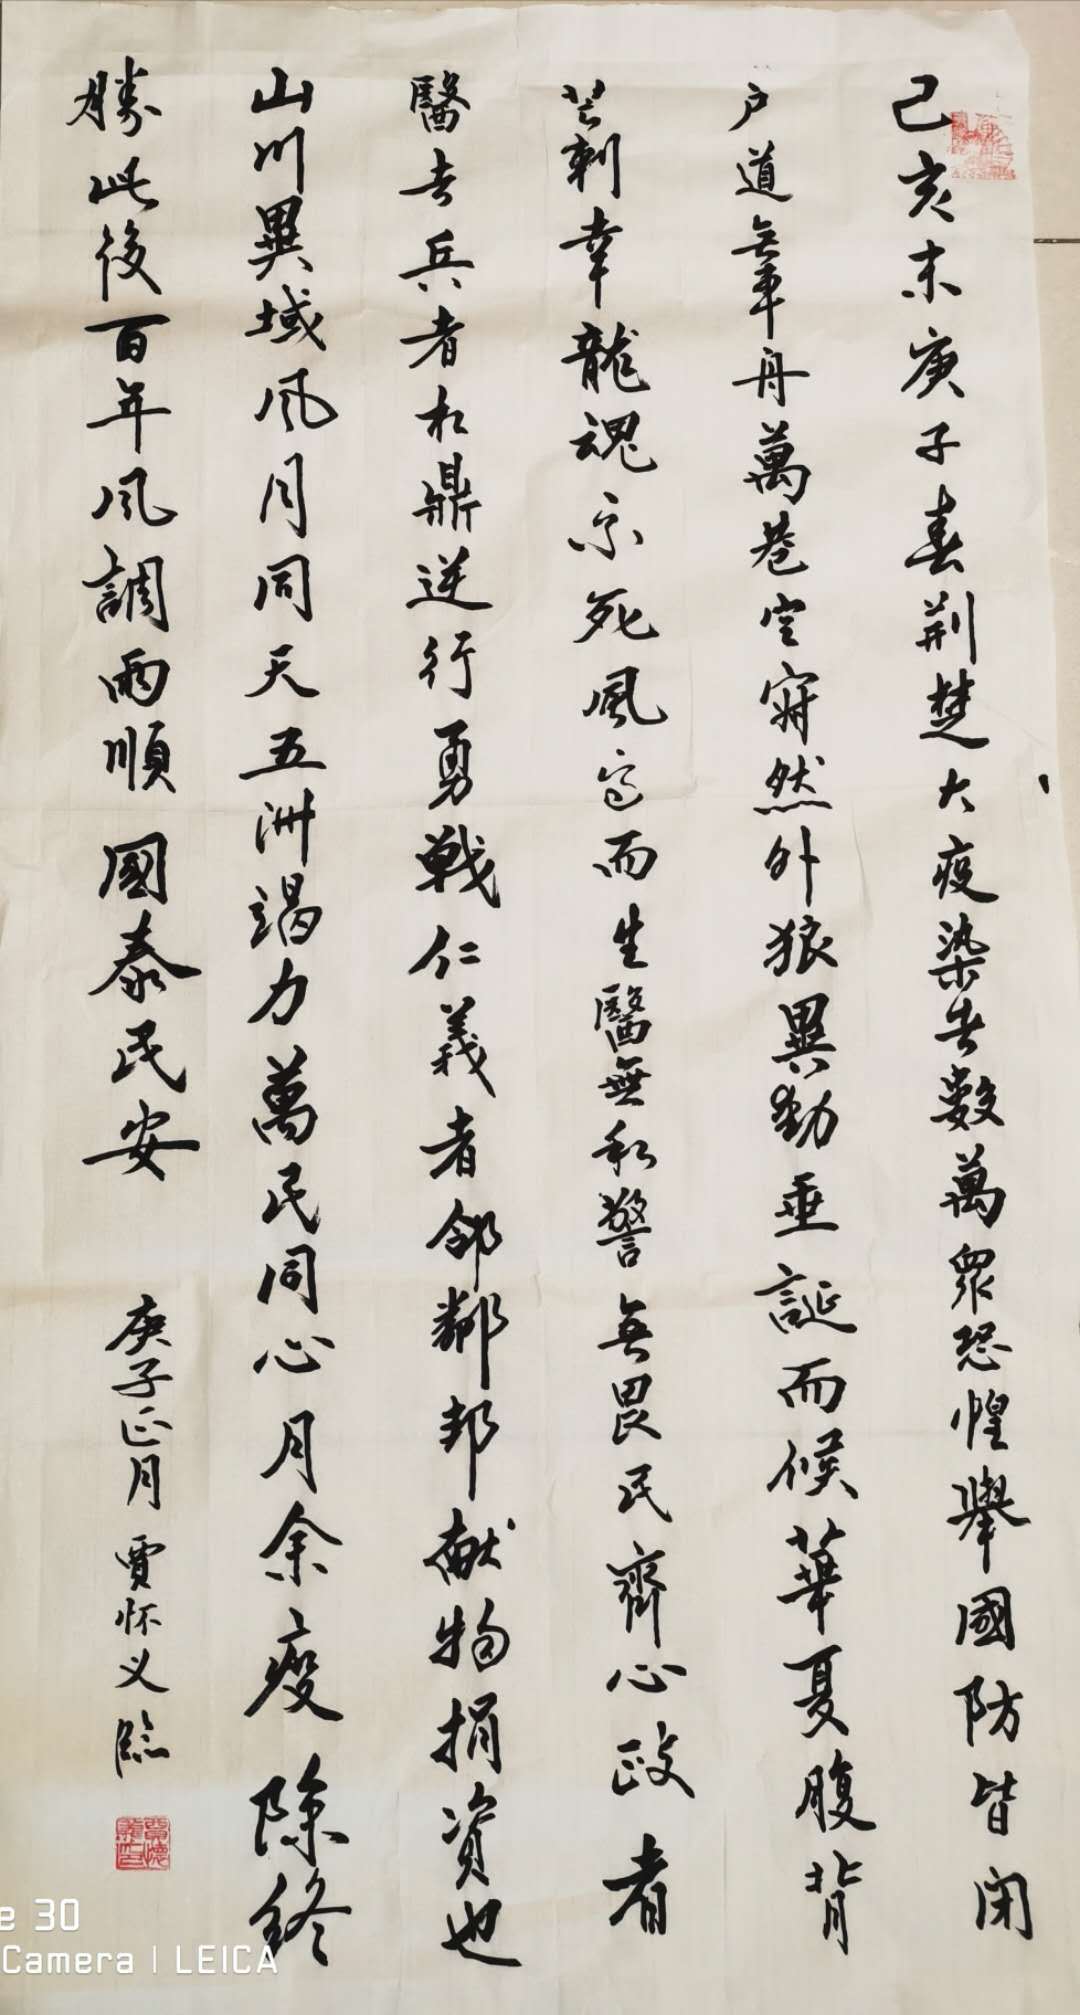 己亥末庚子春荆楚大疫染者數萬眾恐惶舉國防皆閉
户道無車舟萬巷空寂然外狼異動垂誕而候華夏腹背
芒刺幸龍魂不死風雨而生醫無私警無畏民齊心政者
醫者兵者扛鼎逆行勇戰仁義者邻鄰邦献物捐資也
山川異域風月同天五洲竭力萬民同心月余疫除終
勝此後百年風調雨順國泰民安
庚子正月賈怀义臨
e 30
Camera | LEICA